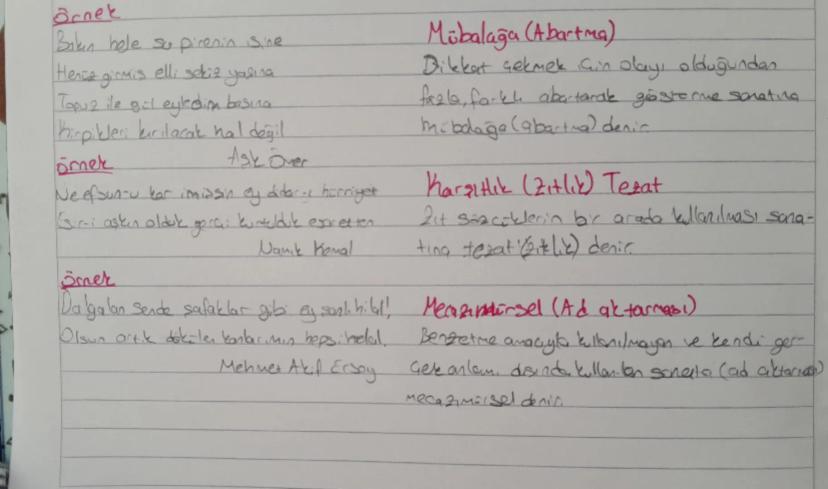 Örnek
Bakın hele şu pirenin işine
Henüz girmiş elli sekiz yaşına
Topuz ile gül eyledim başına
Kirpikleri kırılacak hal değil
Aşk Över
Mübalağa (Abartma)
Dikkat çekmek için olayı olduğundan
fazla, farklı abartarak gösterme sanatına
mübalağa (abartma) denir.
örnek
Ne efsunu kar imişsin ey didar-ı hürriyet
esiri aşkın olduk gerçi kurtulduk esaretten
Namık Kemal
Karşıtlık (Zıtlık) Tezat
Zıt sözcüklerin bir arada kullanılması sana-
tına tezat (zıtlık) denir.
örnek
Dalgalan sende şafaklar gibi ey şanlı hilal!
Olsun artık dökülen kanlarımın hepsi helal.
Mehmet Akif Ersoy
Mecazımürsel (Ad aktarması)
Benzetme amacıyla kullanılmayan ve kendi ger-
çek anlamı dışında kullanılan sanata (ad aktarması)
mecazımürsel denir.